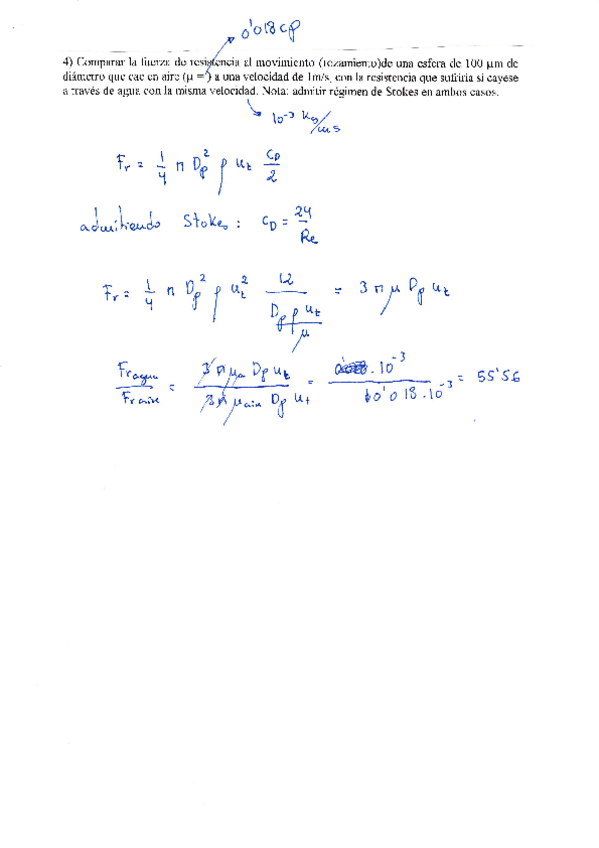 0'018 cp
4) Comparar la fuerza de resistencia al movimiento (rozamiento)de una esfera de 100 µm de
diámetro que cae en aire (µ = ) a una velocidad de 1m/s, con la resistencia que sufriría si cayese
a través de agua con la misma velocidad. Nota: admitir régimen de Stokes en ambos casos.
10⁻³ kg/ms
Fr = 1/4 π Dp² ρ ut CD/2
admitiendo Stokes: CD = 24/Re
Fr = 1/4 π Dp² ρ ut² 12/(Dp ρ ut/µ) = 3 π µ Dp ut
Fr agua/Fr aire = 3 π µa Dp ut/3 π µaire Dp ut = 10⁻³/0'018.10⁻³ = 55'56